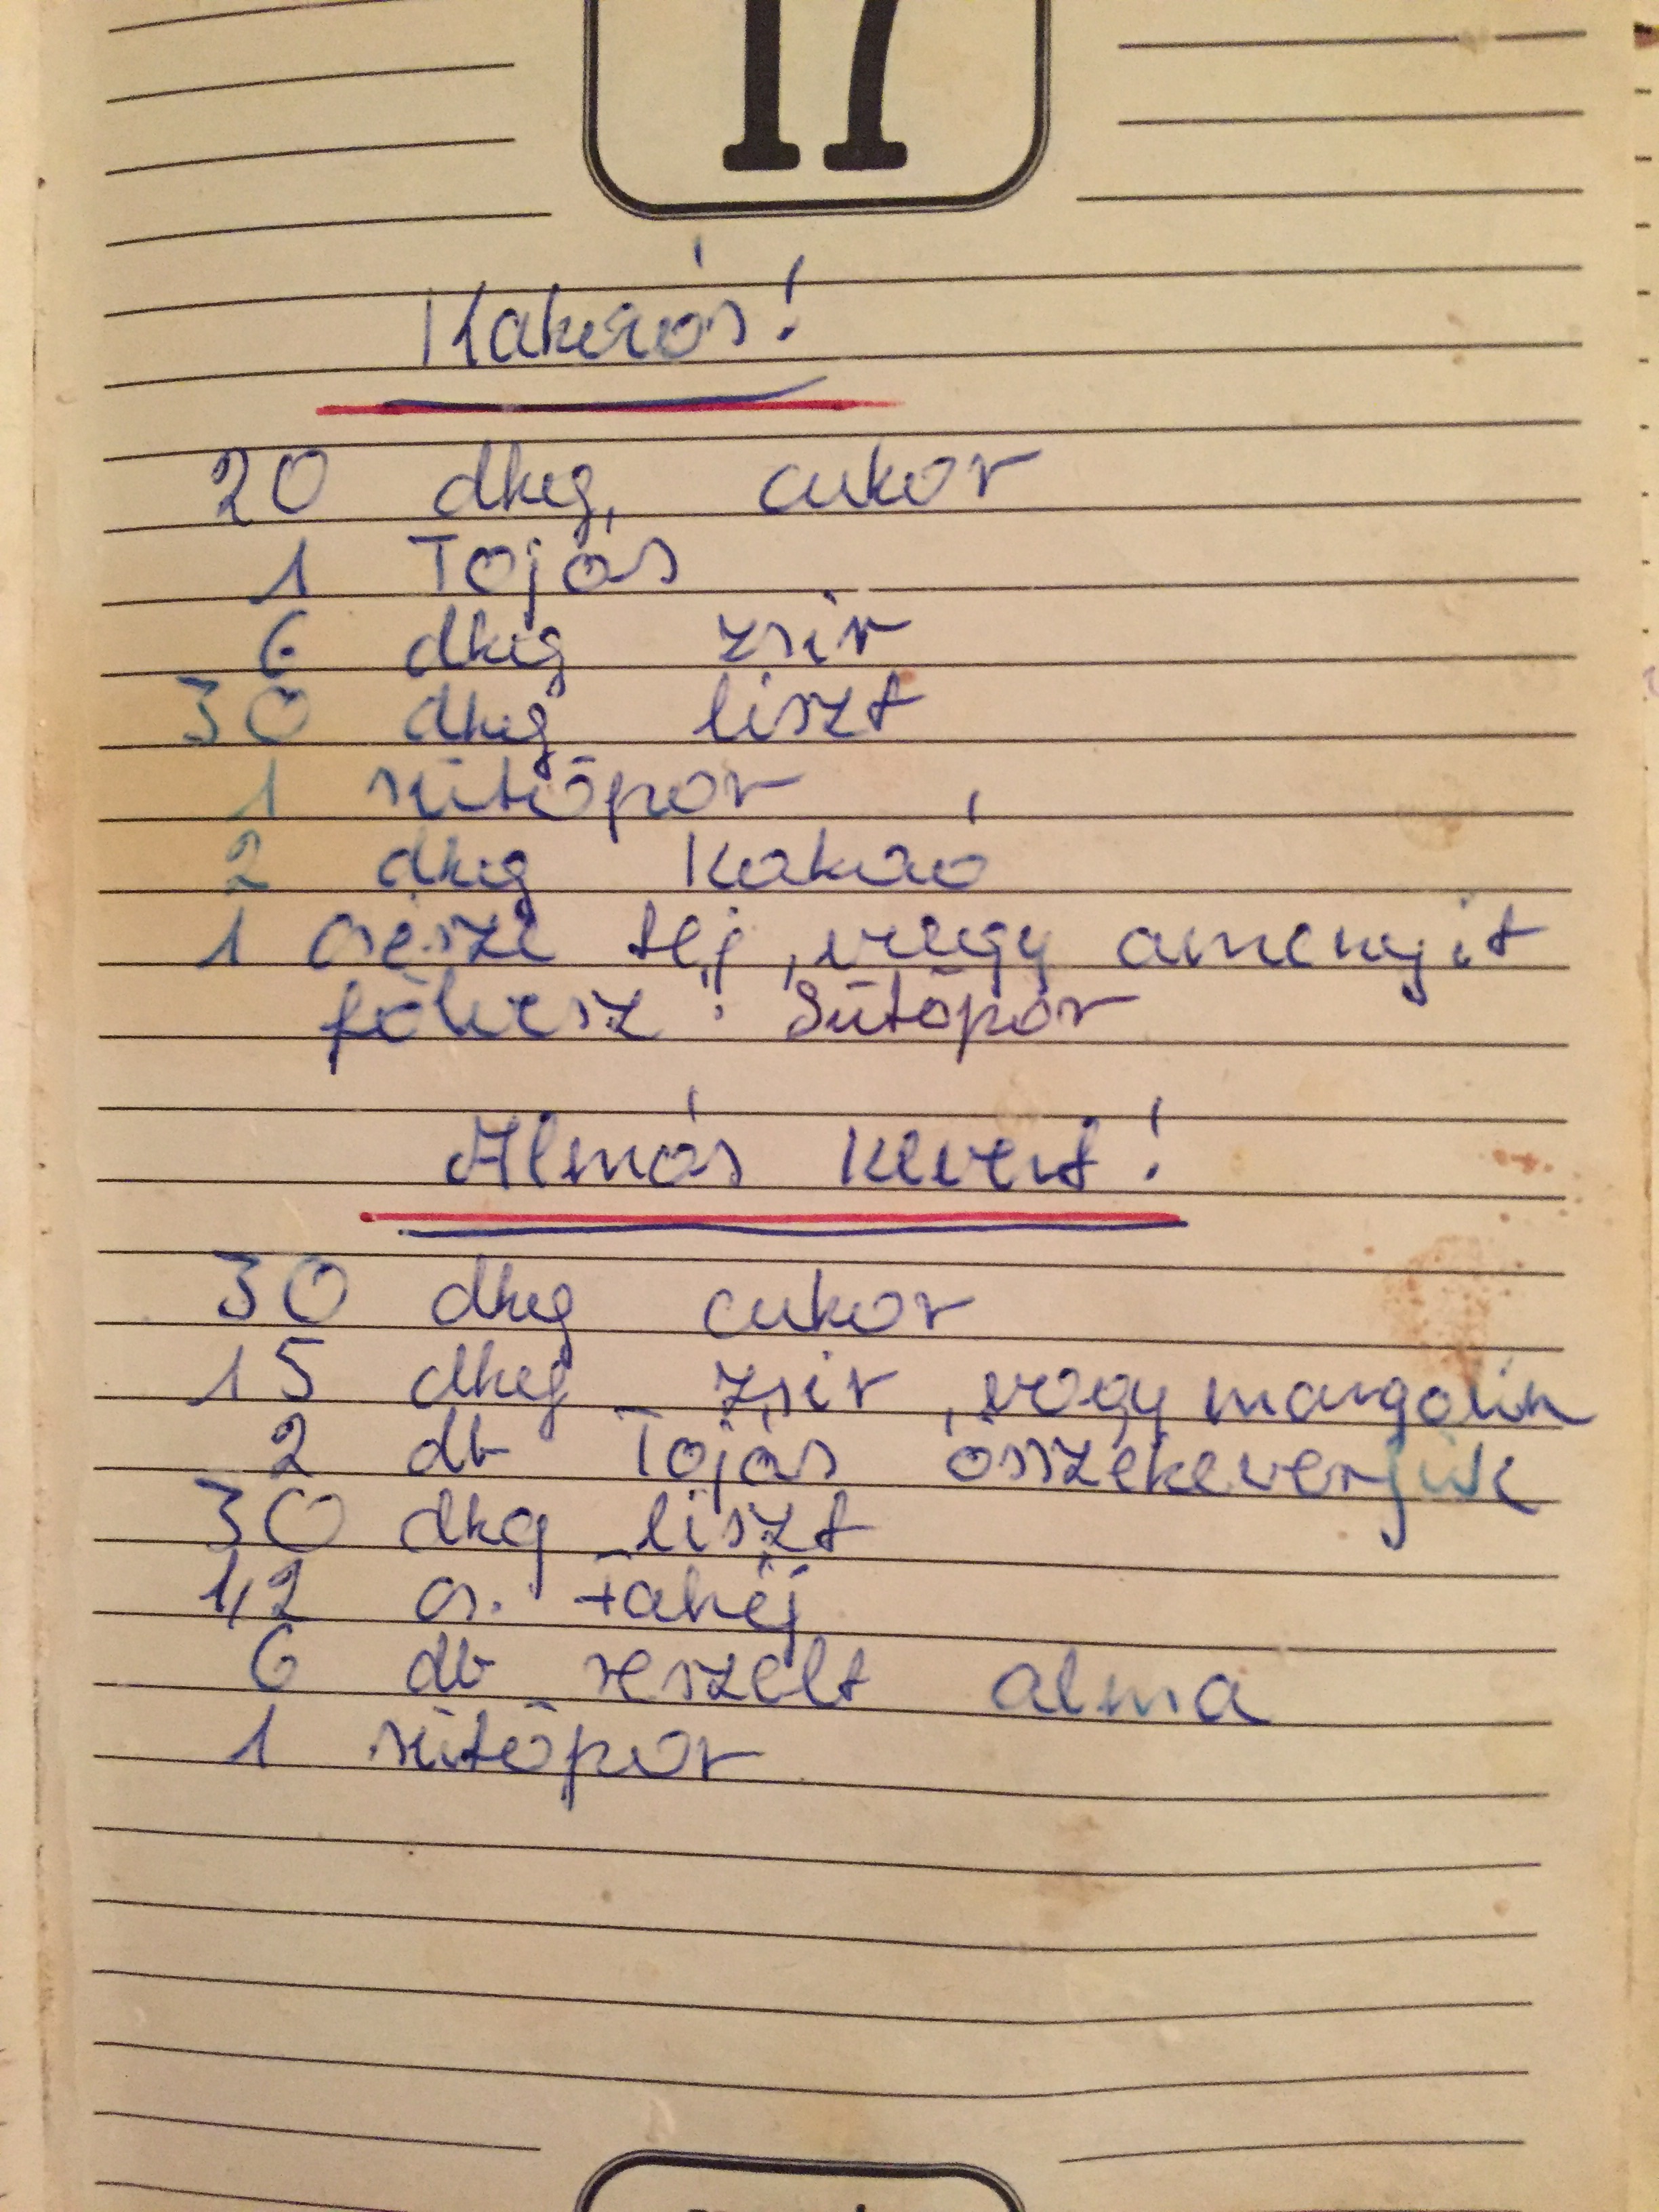 17
Kakaós!
20 dkg, cukor
1 Tojás
6 dkg zsir
30 dkg liszt
1 sütőpor
2 dkg kakaó
1 csésze tej, vagy amenyit
fölvesz! Sütőpor
Almás kevert!
30 dkg cukor
15 dkg zsir, vagy margarin
2 db Tojás összekeverjük
30 dkg liszt
1/2 cs. Fahéj
6 db reszelt alma
1 sütőpor